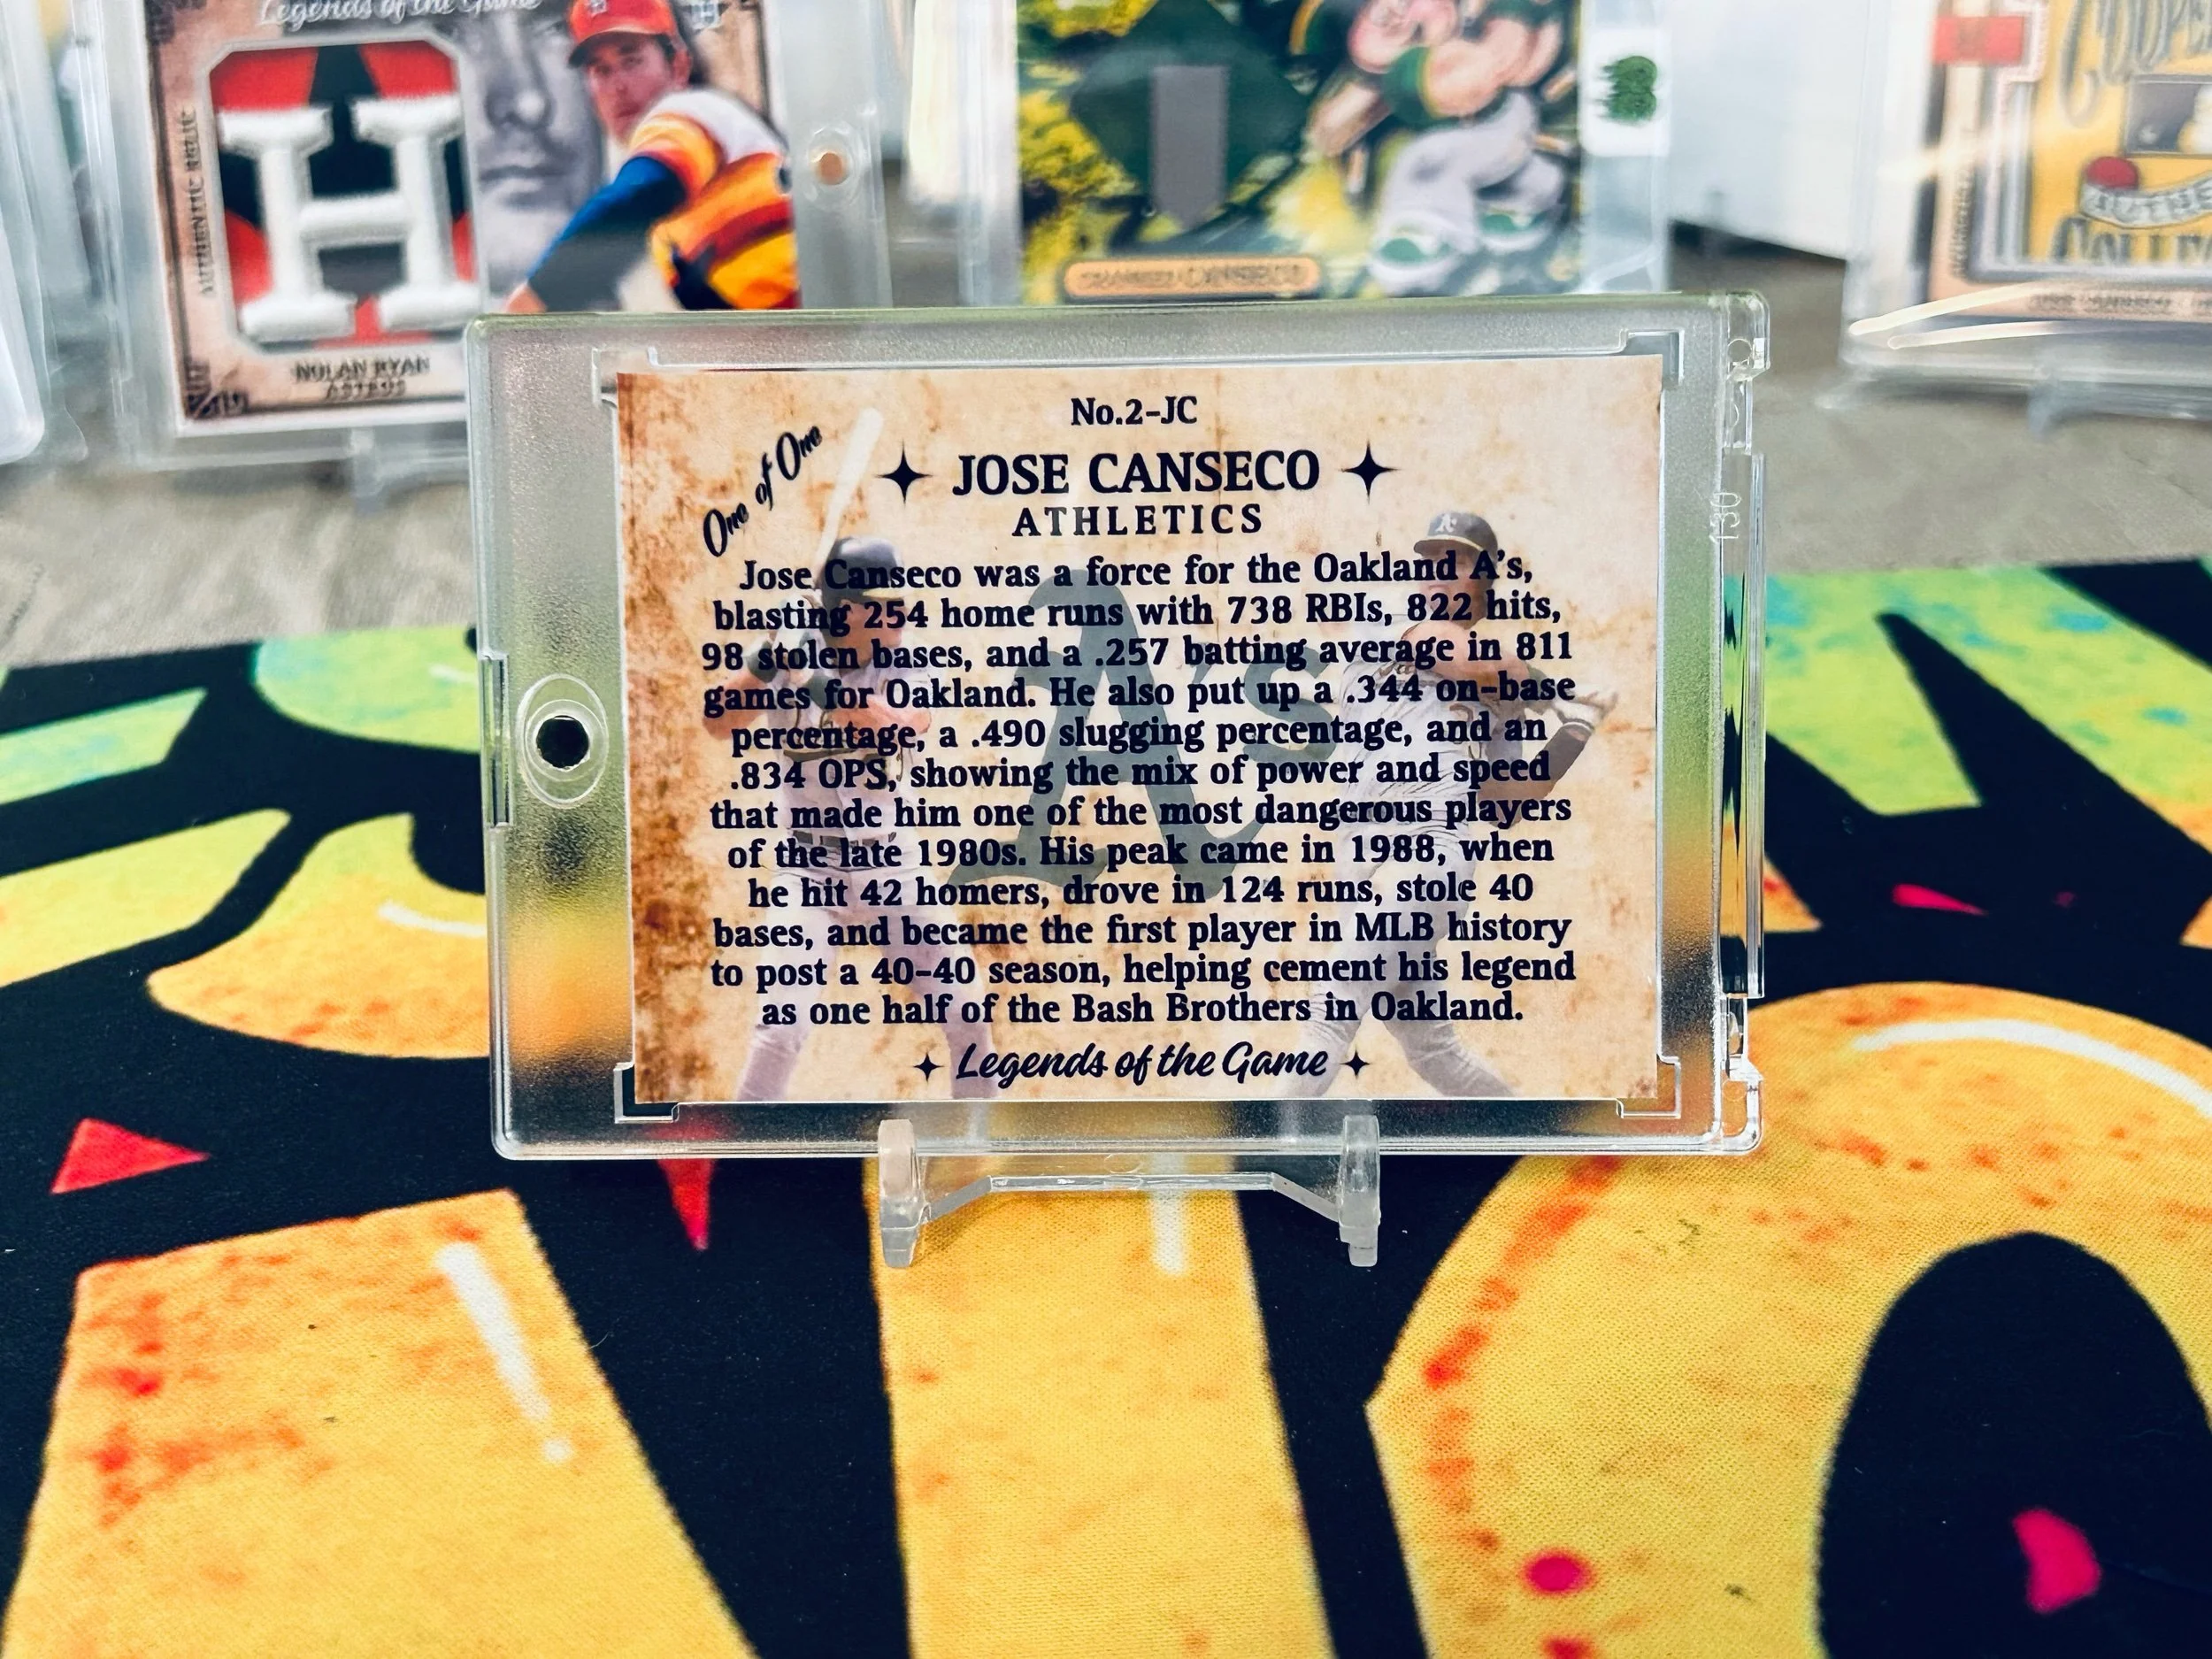 Legends of the Game
H
AUTHENTIC RELIC
NOLAN RYAN
ASTROS
No.2-JC
One of One
JOSE CANSECO
ATHLETICS
Jose Canseco was a force for the Oakland A's,
blasting 254 home runs with 738 RBIs, 822 hits,
98 stolen bases, and a .257 batting average in 811
games for Oakland. He also put up a .344 on-base
percentage, a .490 slugging percentage, and an
.834 OPS, showing the mix of power and speed
that made him one of the most dangerous players
of the late 1980s. His peak came in 1988, when
he hit 42 homers, drove in 124 runs, stole 40
bases, and became the first player in MLB history
to post a 40-40 season, helping cement his legend
as one half of the Bash Brothers in Oakland.
Legends of the Game
A's
130